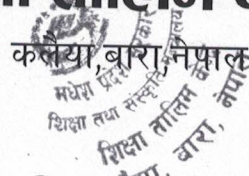 कलैया,बारा,नेपाल
मधेश प्रदेश सरकार
शिक्षा तथा संस्कृति मन्त्रालय
शिक्षा तालिम केन्द्र
बारा, नेपाल